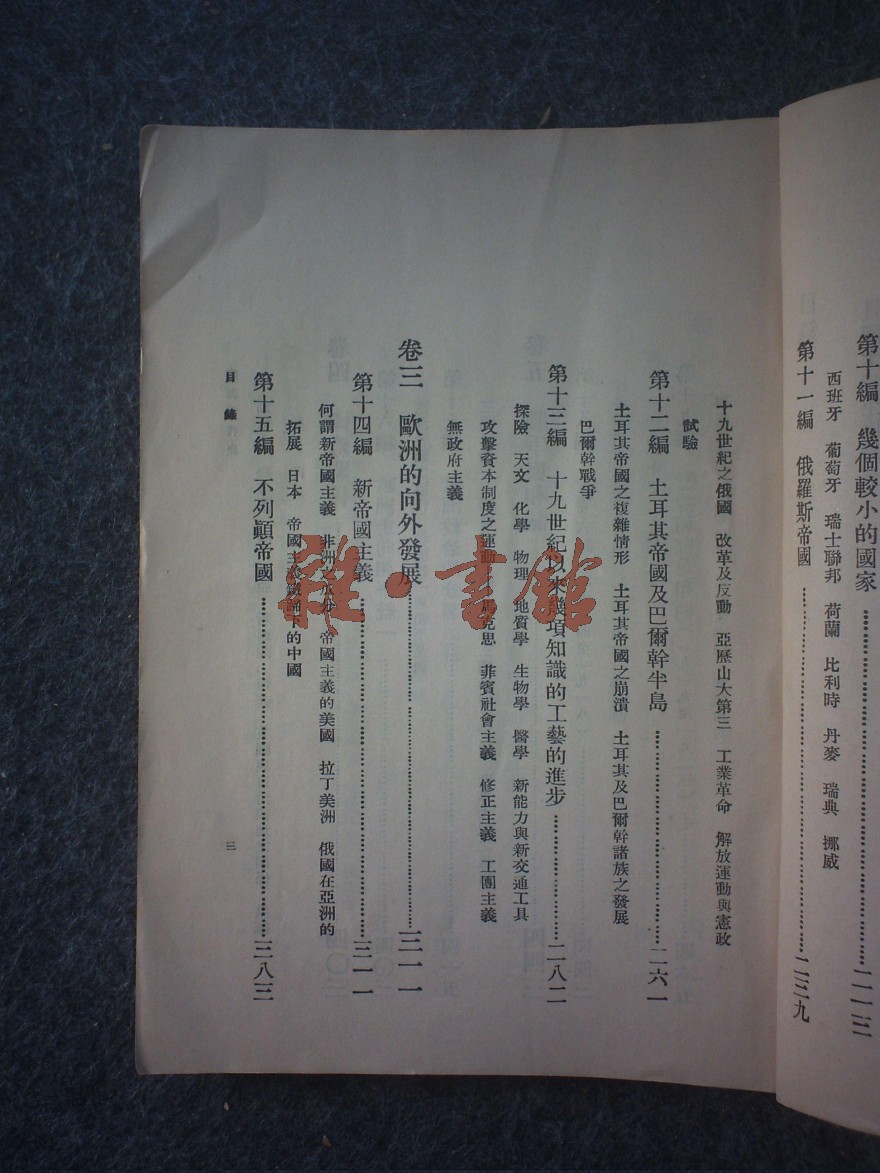 第十編　幾個較小的國家……二一三
西班牙　葡萄牙　瑞士聯邦　荷蘭　比利時　丹麥　瑞典　挪威
第十一編　俄羅斯帝國……二三九
十九世紀之俄國　改革及反動　亞歷山大第三　工業革命　解放運動與憲政
試驗
第十二編　土耳其帝國及巴爾幹半島……二六一
土耳其帝國之複雜情形　土耳其帝國之崩潰　土耳其及巴爾幹諸族之發展
巴爾幹戰爭
第十三編　十九世紀以來幾項知識的工藝的進步……二八二
探險　天文　化學　物理　地質學　生物學　醫學　新能力與新交通工具
攻擊資本制度之運動　馬克思　菲賓社會主義　修正主義　工團主義
無政府主義
卷三　歐洲的向外發展……三一一
第十四編　新帝國主義……三一一
何謂新帝國主義　非洲之瓜分　帝國主義的美國　拉丁美洲　俄國在亞洲的
拓展　日本　帝國主義下的中國
第十五編　不列顛帝國……三八三
目錄
三
雜·書館